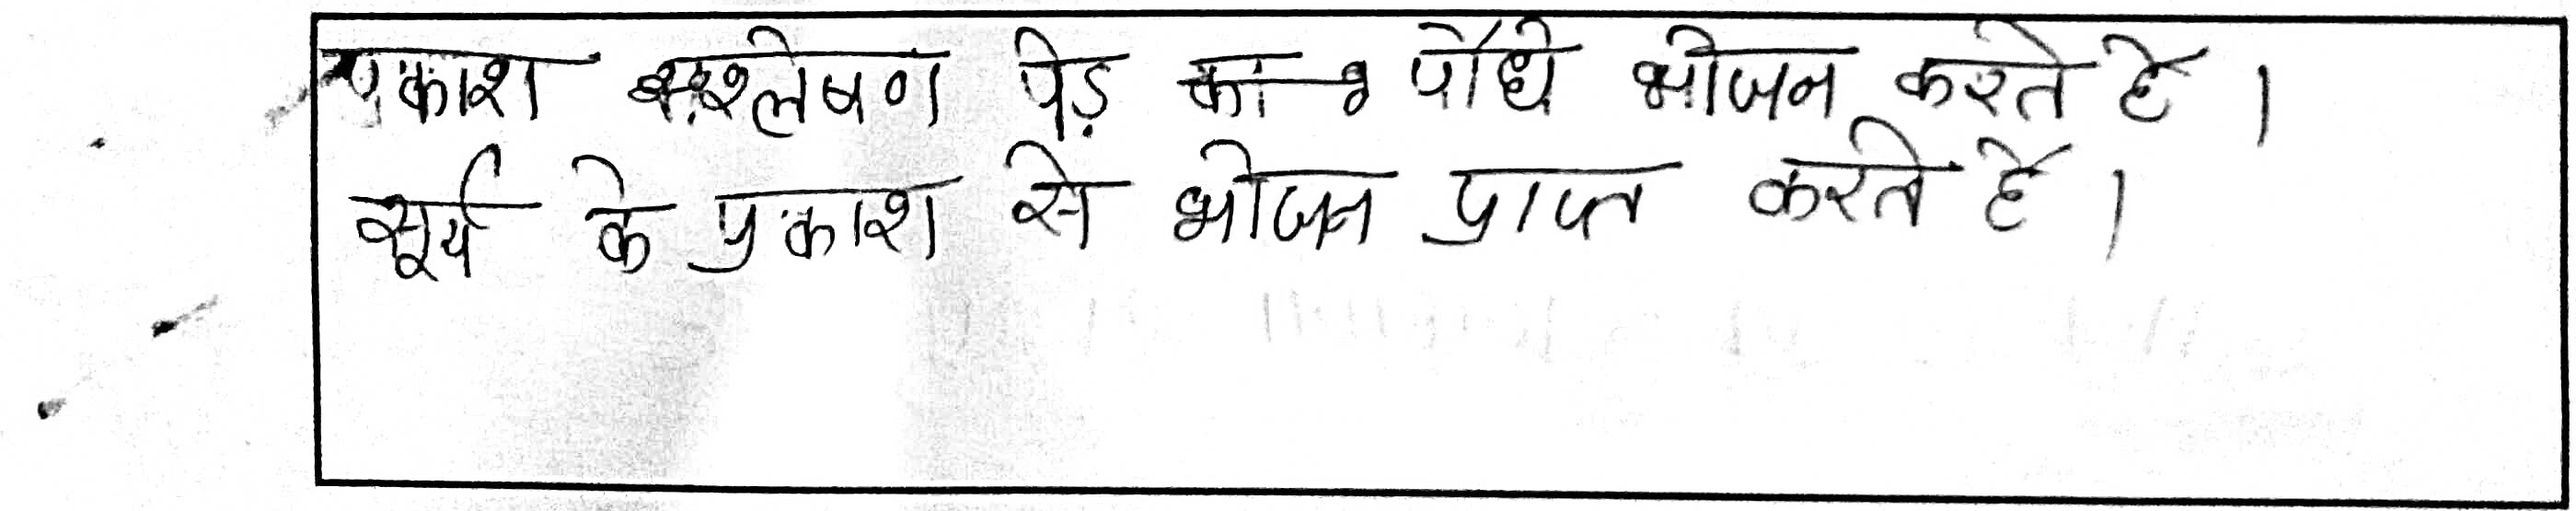 प्रकाश संश्लेषण पेड़ पौधे भोजन करते है ।
सूर्य के प्रकाश से भोजन प्राप्त करते हैं ।